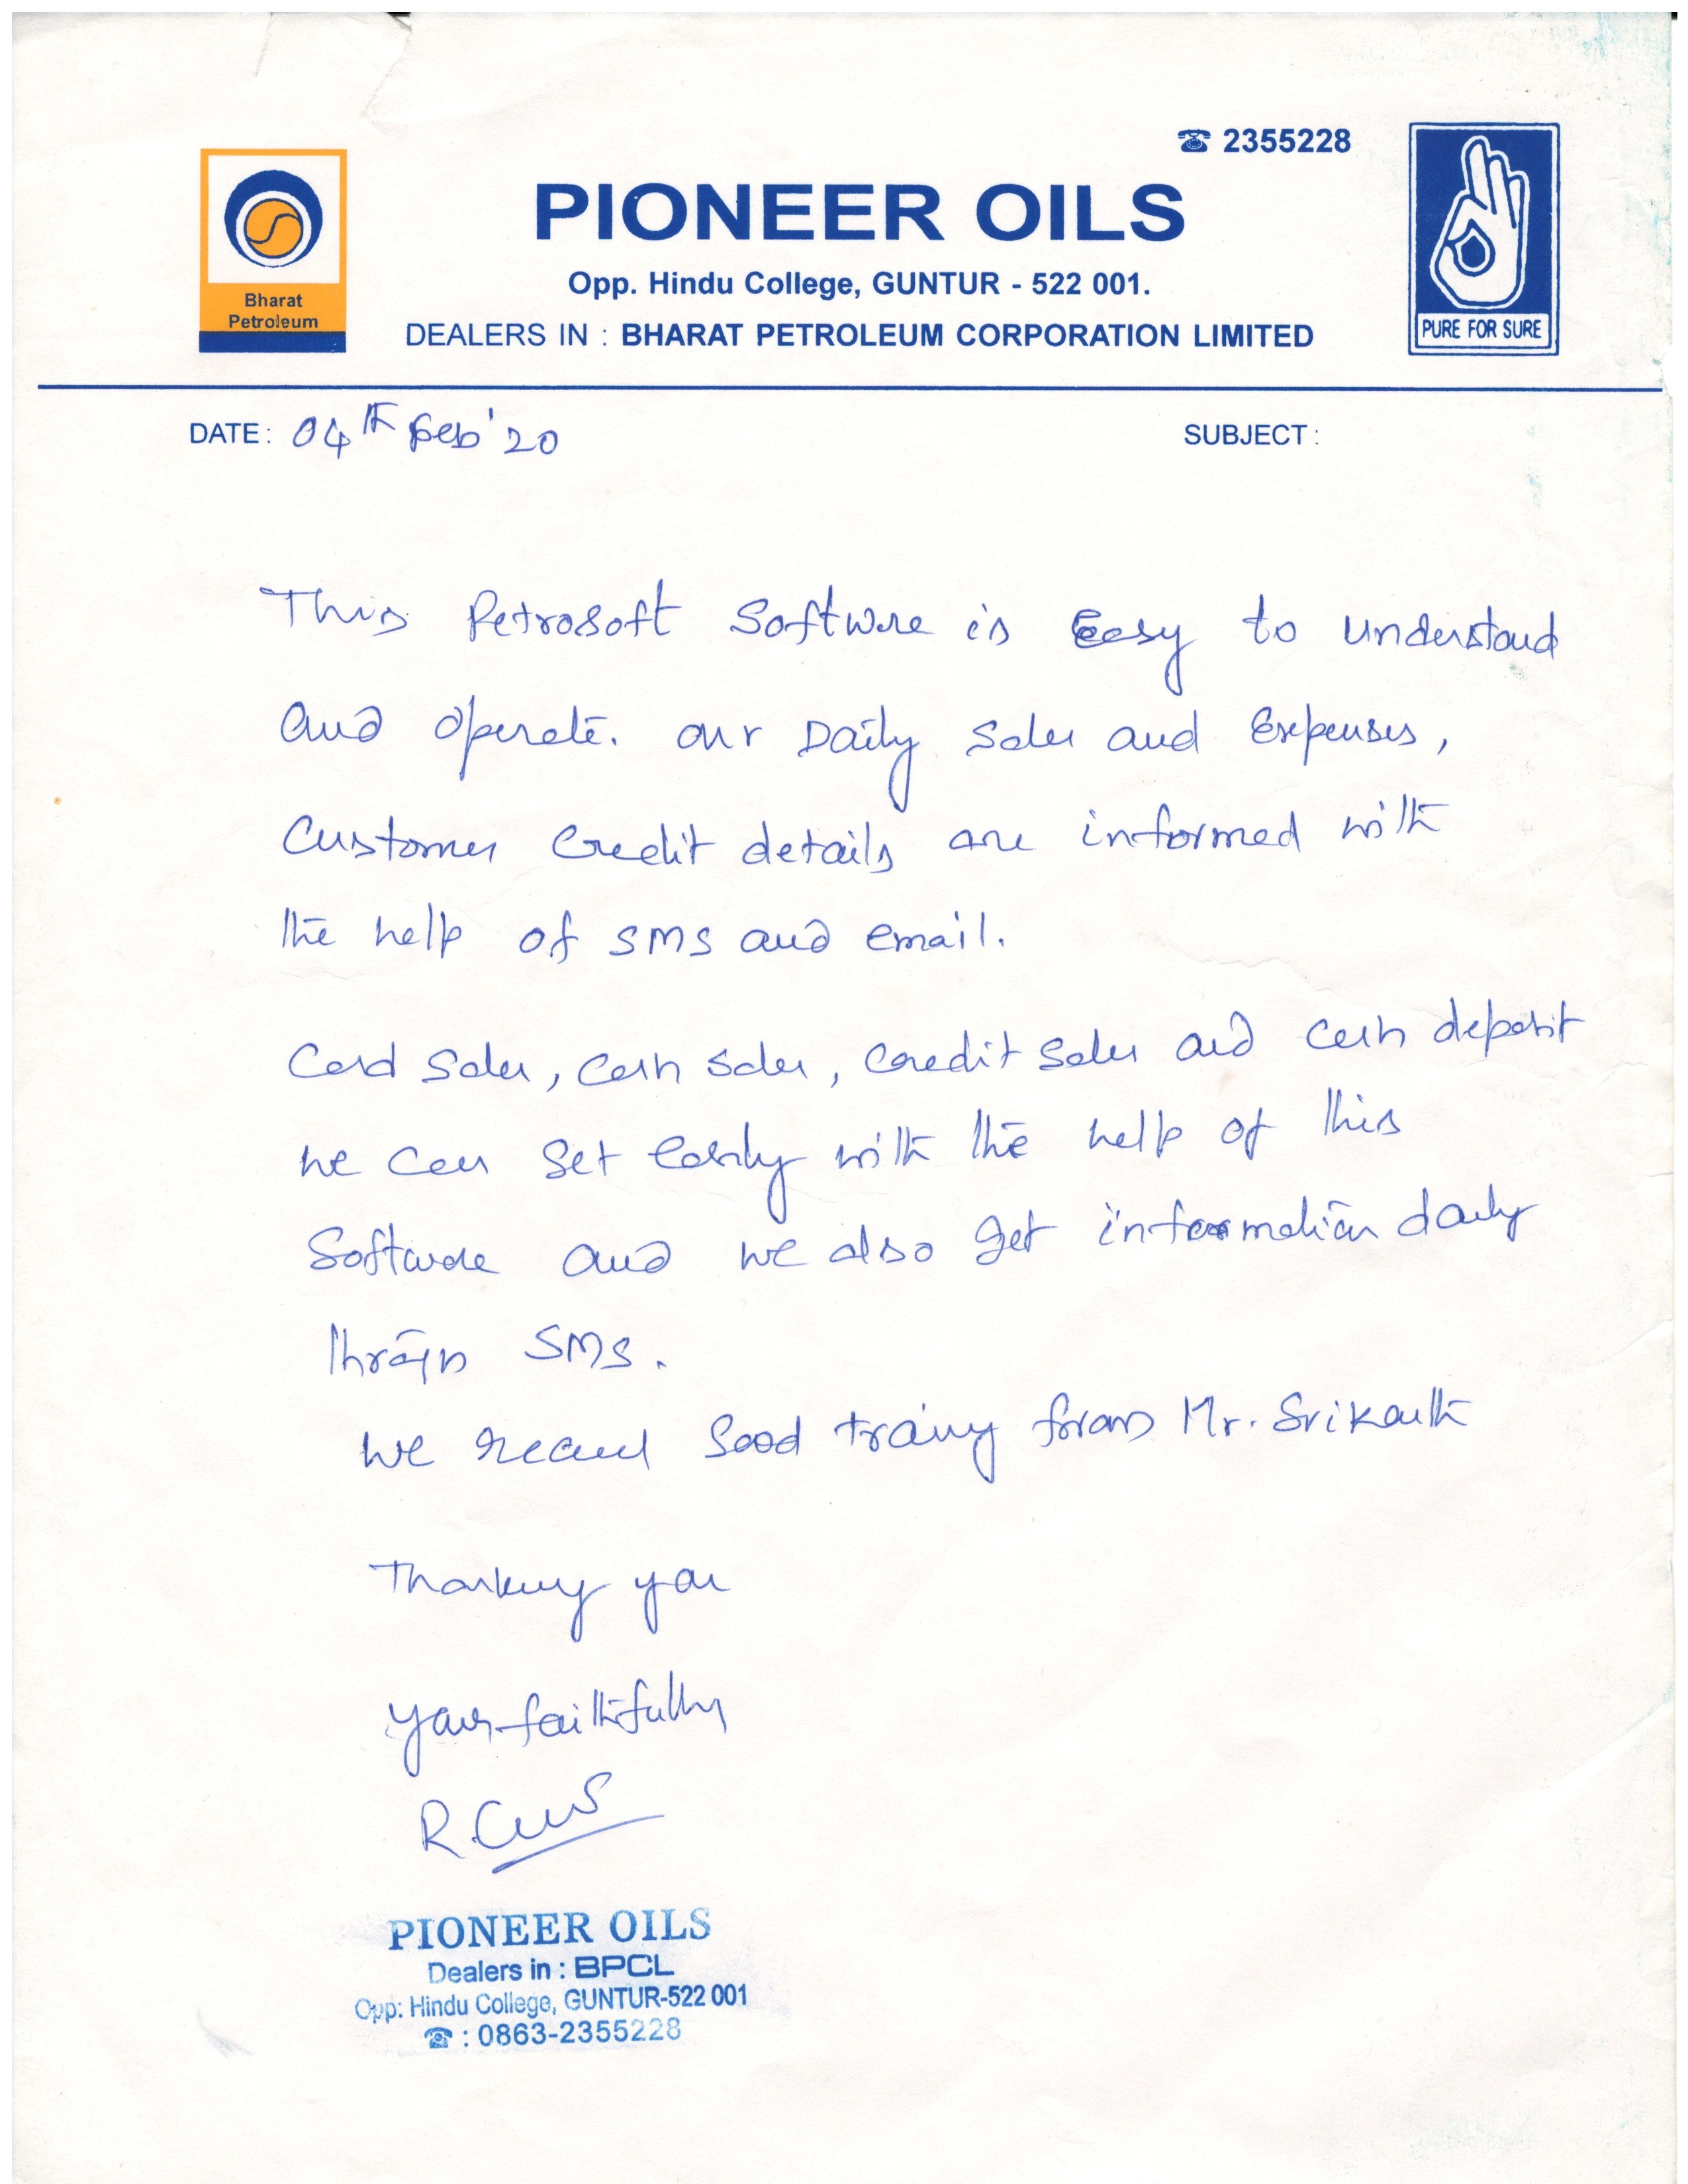 ☎ 2355228
PIONEER OILS
Opp. Hindu College, GUNTUR - 522 001.
DEALERS IN : BHARAT PETROLEUM CORPORATION LIMITED
Bharat
Petroleum
PURE FOR SURE
DATE: 04th Feb'20
SUBJECT :
This Petrosoft Software is Easy to understand
and operate. our Daily Sales and Expenses,
Customer Credit details are informed with
the help of SMS and email.
Card Sales, Cash Sales, Credit Sales and Cash deposit
we can get easily with the help of this
Software and we also get information daily
through SMS.
we received Good training from Mr. Srikanth
Thanking you
yours faithfully
PIONEER OILS
Dealers in : BPCL
Opp: Hindu College, GUNTUR-522 001
☎ : 0863-2355228